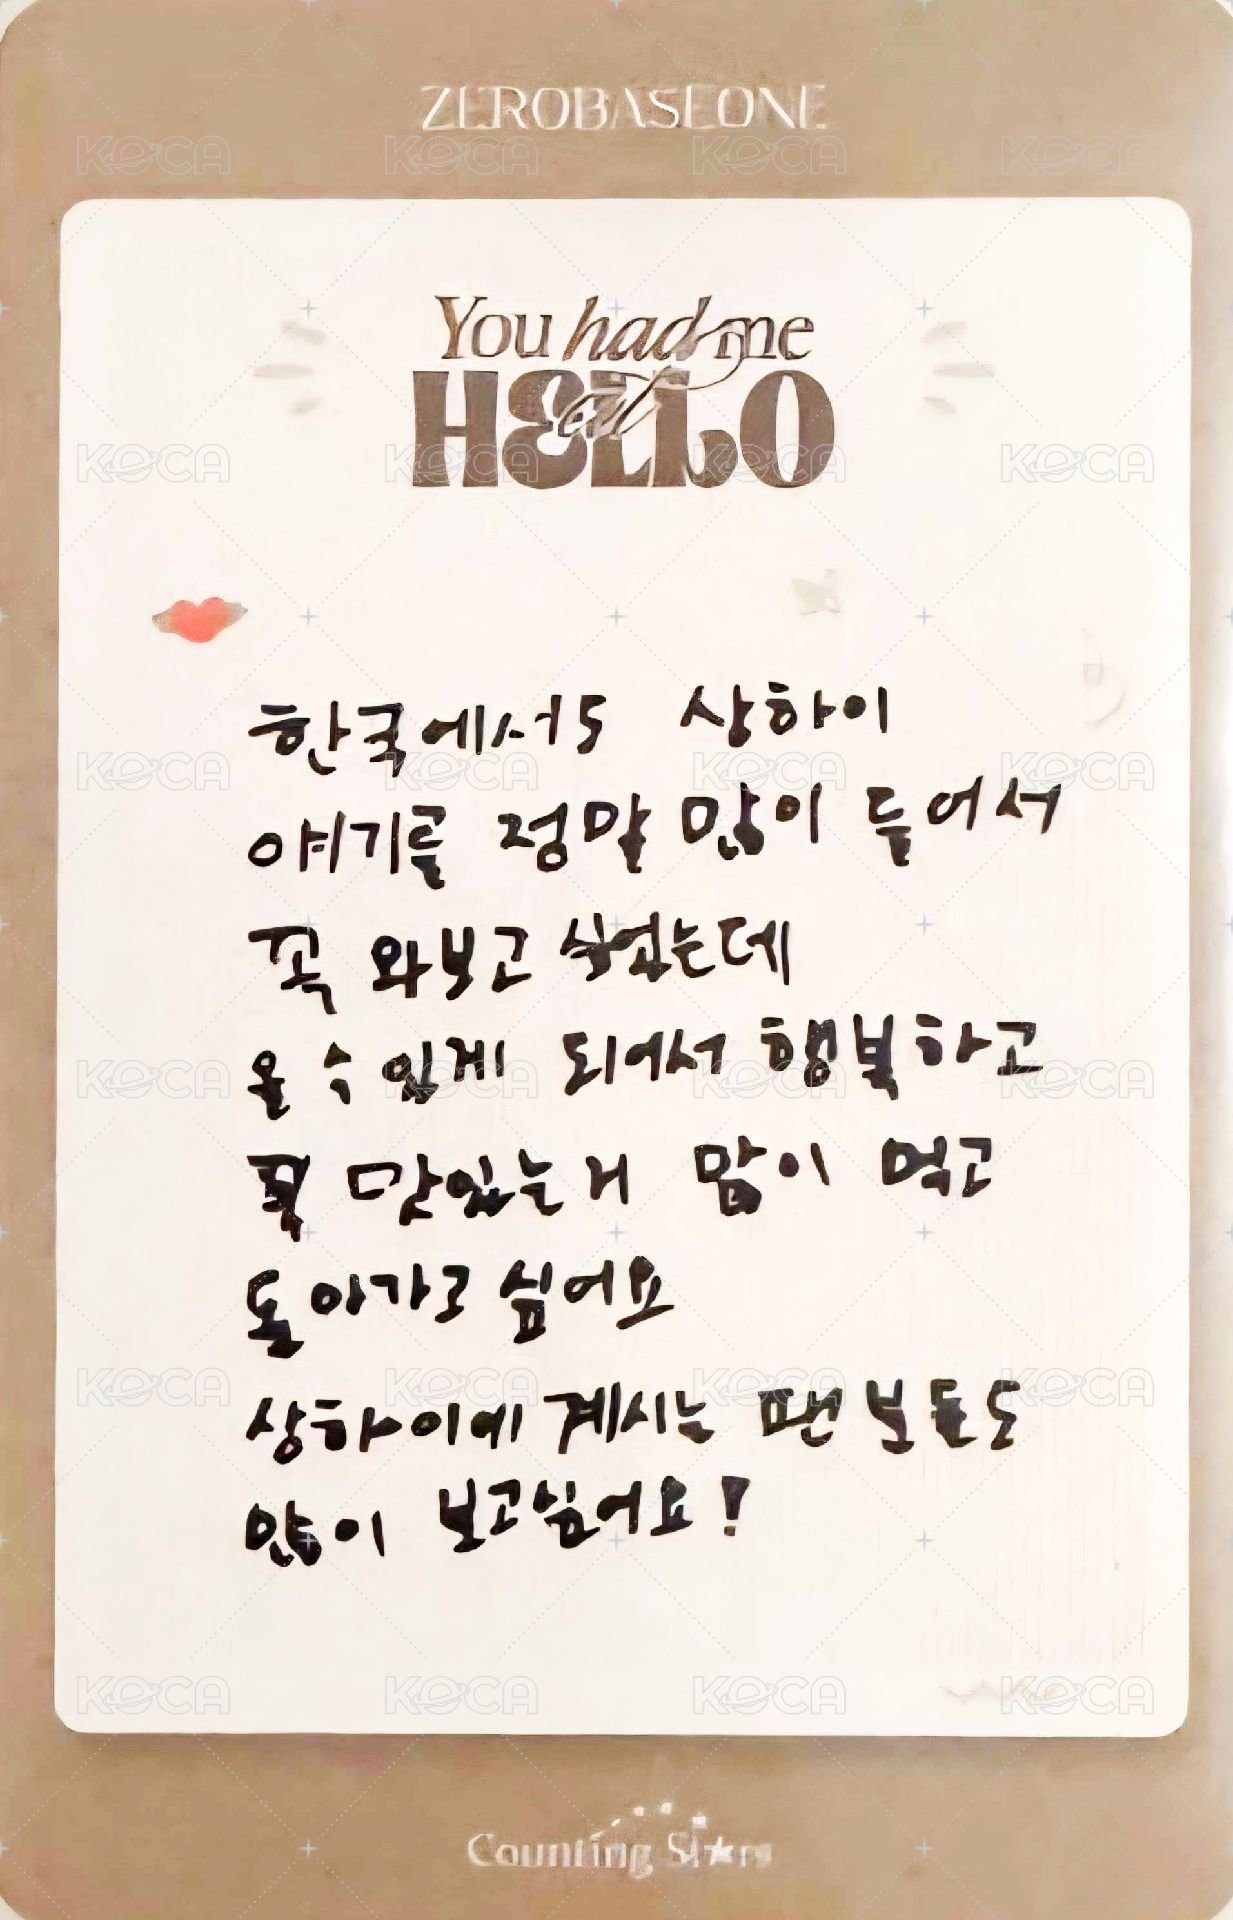 ZEROBASEONE
You had me
at
HELLO
한국에서도 상하이
얘기를 정말 많이 들어서
꼭 와보고 싶었는데
올 수 있게 되어서 행복하고
꼭 맛있는거 많이 먹고
돌아가고 싶어요
상하이에 계시는 팬분들도
많이 보고싶어요!
Counting Stars
KOCA